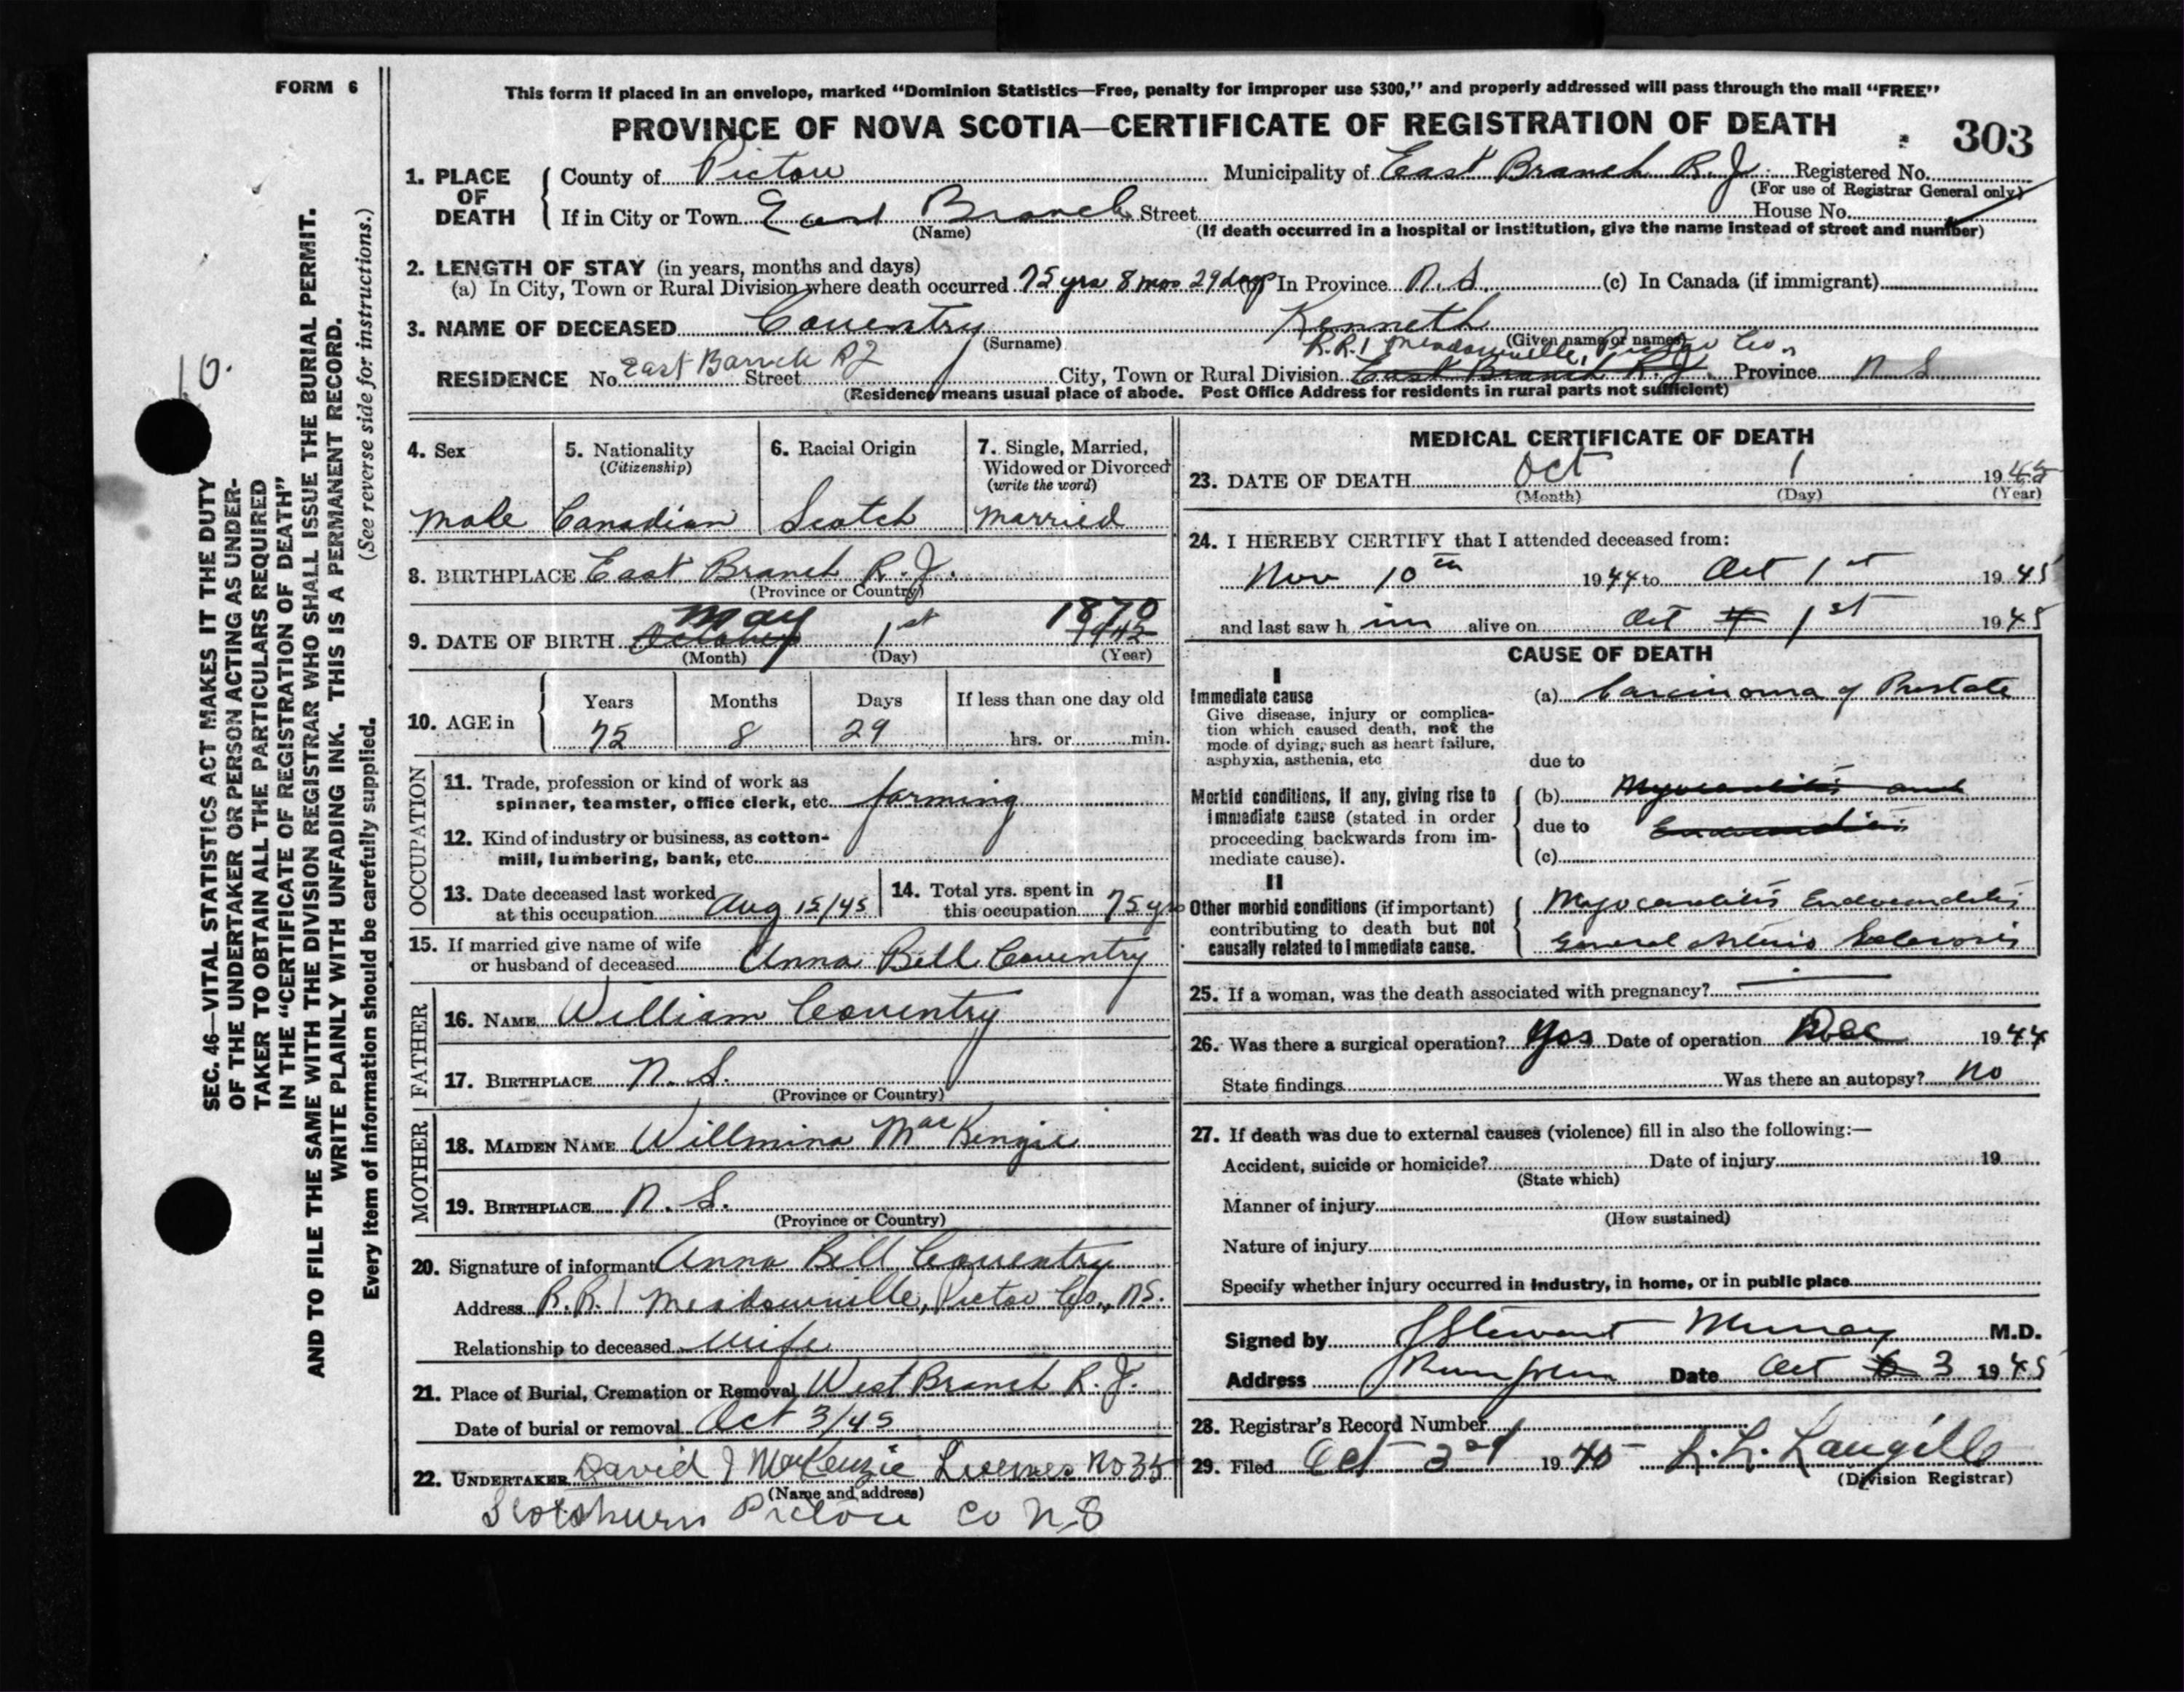 FORM 6
This form if placed in an envelope, marked "Dominion Statistics—Free, penalty for improper use $300," and properly addressed will pass through the mail "FREE"
PROVINCE OF NOVA SCOTIA—CERTIFICATE OF REGISTRATION OF DEATH
303
1. PLACE OF DEATH
County of Pictou Municipality of East Branch R. J. Registered No.
(For use of Registrar General only)
If in City or Town East Branch Street House No.
(Name) (If death occurred in a hospital or institution, give the name instead of street and number)
2. LENGTH OF STAY (in years, months and days)
(a) In City, Town or Rural Division where death occurred 75 yrs 8 mos 29 days In Province N. S. (c) In Canada (if immigrant)
3. NAME OF DECEASED Coventry Kenneth
(Surname) (Given name or names)
R.R.1 Meadowville, Pictou Co.,
RESIDENCE No. East Barnch RJ Street City, Town or Rural Division East Branch R.J. Province N S
(Residence means usual place of abode. Post Office Address for residents in rural parts not sufficient)
4. Sex
male
5. Nationality
(Citizenship)
Canadian
6. Racial Origin
Scotch
7. Single, Married,
Widowed or Divorced
(write the word)
married
8. BIRTHPLACE East Branch R. J.
(Province or Country)
May 1870
9. DATE OF BIRTH October 1st 1942
(Month) (Day) (Year)
10. AGE in
Years Months Days If less than one day old
75 8 29 hrs. or min.
OCCUPATION
11. Trade, profession or kind of work as
spinner, teamster, office clerk, etc. farming
12. Kind of industry or business, as cotton-
mill, lumbering, bank, etc.
13. Date deceased last worked
at this occupation Aug 15/45
14. Total yrs. spent in
this occupation 75 yrs
15. If married give name of wife
or husband of deceased Anna Bell Coventry
FATHER
16. NAME William Coventry
17. BIRTHPLACE N. S.
(Province or Country)
MOTHER
18. MAIDEN NAME Willmina MacKenzie
19. BIRTHPLACE N. S.
(Province or Country)
20. Signature of informant Anna Bell Coventry
Address R.R.1 Meadowville, Pictou Co., NS.
Relationship to deceased wife
21. Place of Burial, Cremation or Removal West Branch R. J.
Date of burial or removal Oct 3/45
22. UNDERTAKER David J MacKenzie No 35
(Name and address)
Scotsburn Pictou Co N.S
MEDICAL CERTIFICATE OF DEATH
23. DATE OF DEATH Oct 1 1945
(Month) (Day) (Year)
24. I HEREBY CERTIFY that I attended deceased from:
Nov 10th 1944 to Oct 1st 1945
and last saw h im alive on Oct 4 1st 1945
CAUSE OF DEATH
I
Immediate cause
Give disease, injury or complica-
tion which caused death, not the
mode of dying, such as heart failure,
asphyxia, asthenia, etc
(a) Carcinoma of Prostate
due to
Morbid conditions, if any, giving rise to
immediate cause (stated in order
proceeding backwards from im-
mediate cause).
(b) Myocarditis and
due to Endocarditis
(c)
II
Other morbid conditions (if important)
contributing to death but not
causally related to immediate cause.
Myocarditis Endocarditis
General Arterio Sclerosis
25. If a woman, was the death associated with pregnancy?
26. Was there a surgical operation? Yes Date of operation 1944
State findings Was there an autopsy? No
27. If death was due to external causes (violence) fill in also the following:—
Accident, suicide or homicide? Date of injury 19
(State which)
Manner of injury
(How sustained)
Nature of injury
Specify whether injury occurred in industry, in home, or in public place
Signed by J Stewart Murray M.D.
Address Date Oct 6 3 1945
28. Registrar's Record Number
29. Filed Oct 3rd 1945 L. L. Langille
(Division Registrar)
10.
SEC. 46—VITAL STATISTICS ACT MAKES IT THE DUTY
OF THE UNDERTAKER OR PERSON ACTING AS UNDER-
TAKER TO OBTAIN ALL THE PARTICULARS REQUIRED
IN THE "CERTIFICATE OF REGISTRATION OF DEATH"
AND TO FILE THE SAME WITH THE DIVISION REGISTRAR WHO SHALL ISSUE THE BURIAL PERMIT.
WRITE PLAINLY WITH UNFADING INK. THIS IS A PERMANENT RECORD.
(See reverse side for instructions.)
Every item of information should be carefully supplied.